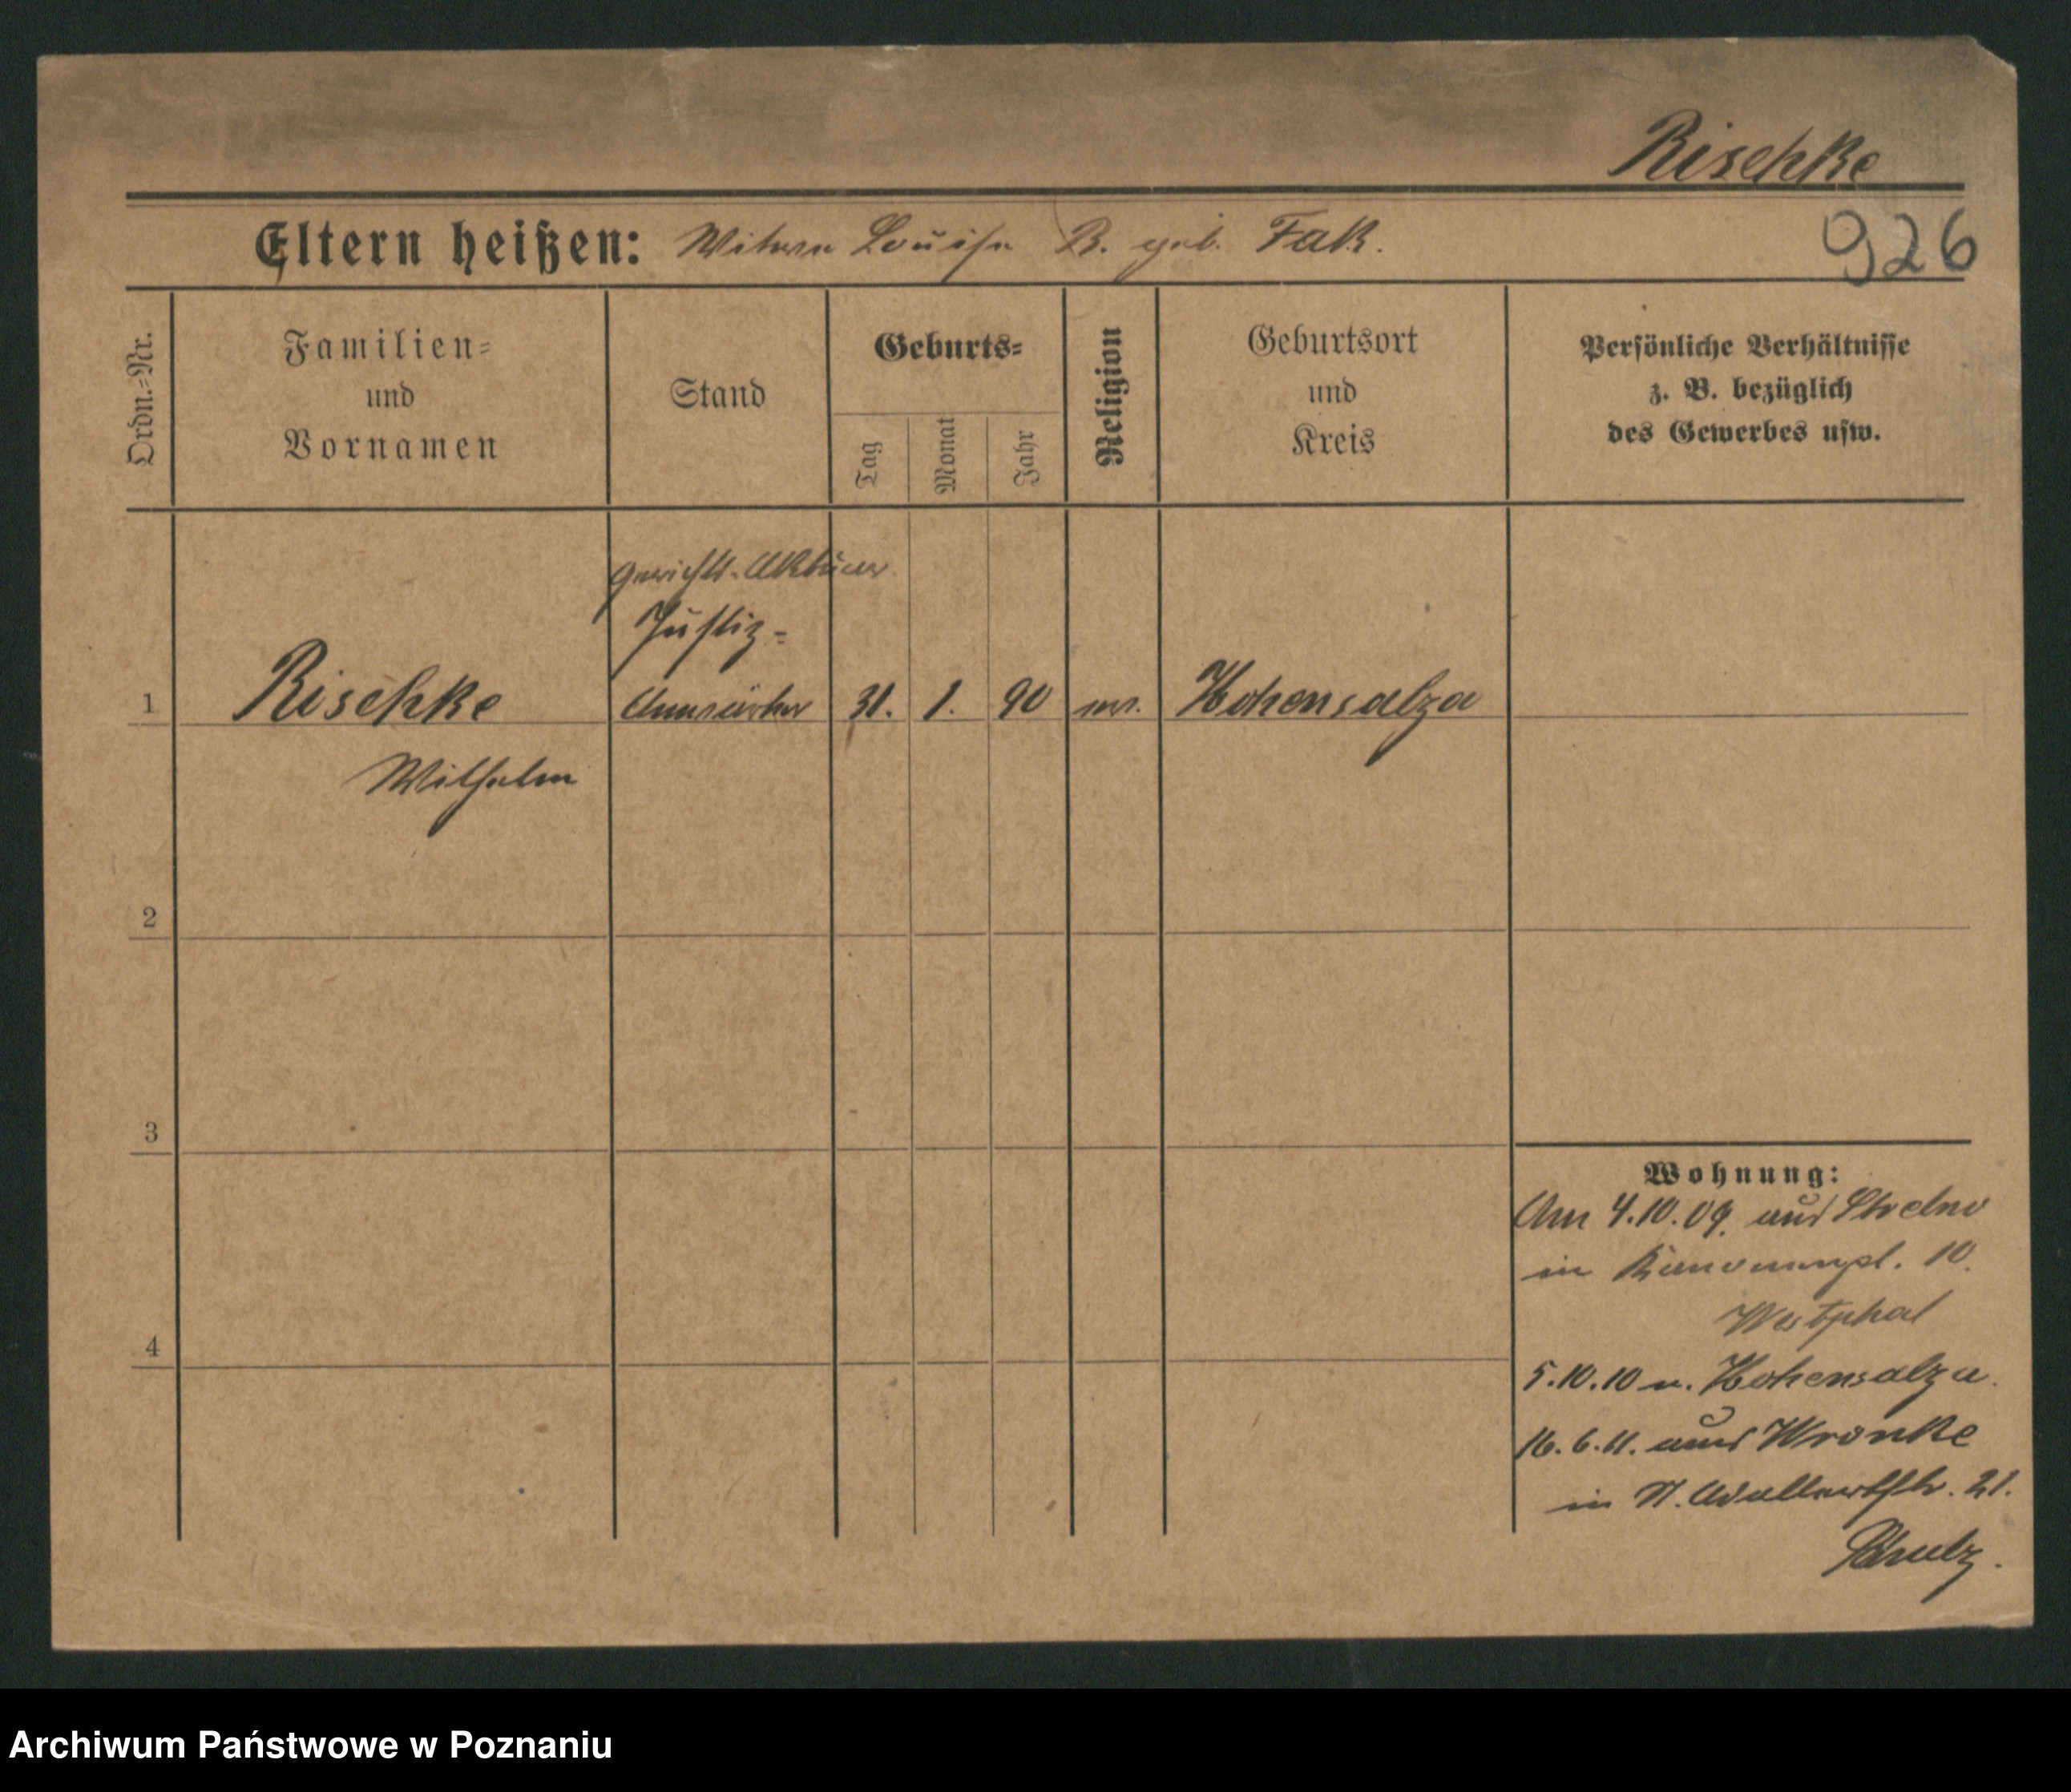 Rischke
Eltern heißen: Witwe Louise R. geb. Fak.
926
Ordn.=Nr.
Familien=
und
Vornamen
Stand
Geburts=
Tag
Monat
Jahr
Religion
Geburtsort
und
Kreis
Persönliche Verhältnisse
z. B. bezüglich
des Gewerbes usw.
Gerichts-Aktuar
Justiz-
Anwärter
1 Rischke 31. 1. 90 ev. Hohensalza
Wilhelm
2
3
4
Wohnung:
Am 4.10.09. aus Strelno
in 10.
Westphal
5.10.10 n. Hohensalza.
16.6.11. aus Wronke
in St. Adalbertstr. 21.
Schulz.
Archiwum Państwowe w Poznaniu